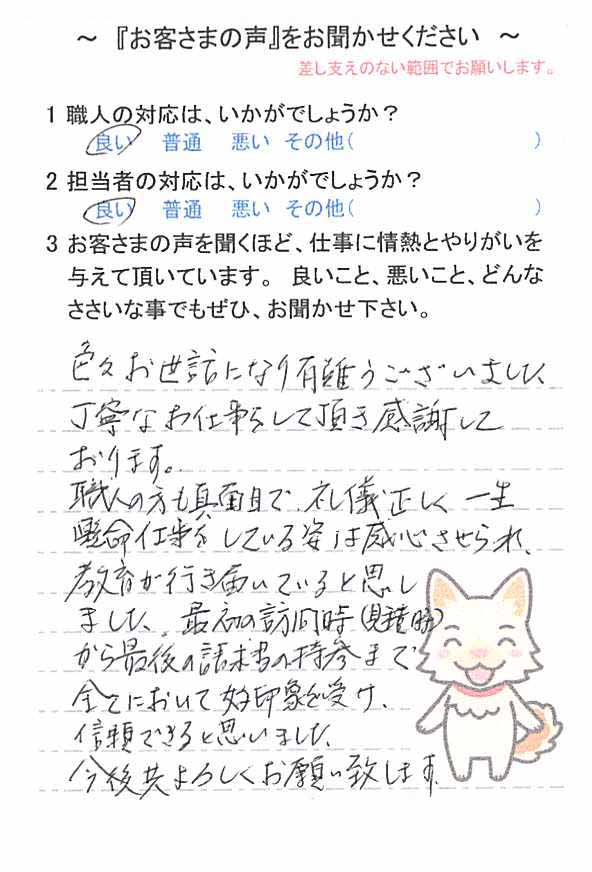 ～ 『お客さまの声』をお聞かせください ～
差し支えのない範囲でお願いします。
1 職人の対応は、いかがでしょうか？
良い 普通 悪い その他( )
2 担当者の対応は、いかがでしょうか？
良い 普通 悪い その他( )
3 お客さまの声を聞くほど、仕事に情熱とやりがいを
与えて頂いています。 良いこと、悪いこと、どんな
ささいな事でもぜひ、お聞かせ下さい。
色々お世話になり有難うございました、
丁寧なお仕事をして頂き感謝して
おります。
職人の方も真面目で、礼儀正しく 一生
懸命仕事をしている姿は感心させられ、
教育が行き届いていると思し
ました、最初の訪問時(見積時)
から最後の請求書の持参まで
全てにおいて好印象を受け、
信頼できると思いました、
今後共よろしくお願い致します。